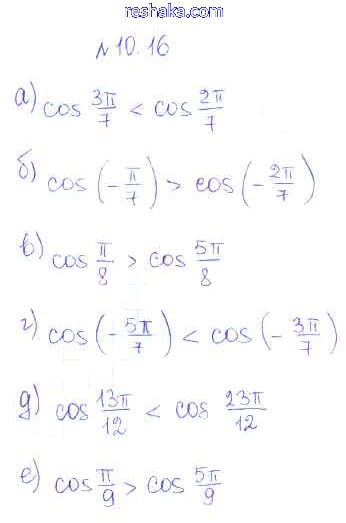 reshaka.com
№10.16
а) cos 3π/7 < cos 2π/7
б) cos (-π/7) > cos (-2π/7)
в) cos π/8 > cos 5π/8
г) cos (-5π/7) < cos (-3π/7)
д) cos 13π/12 < cos 23π/12
е) cos π/9 > cos 5π/9